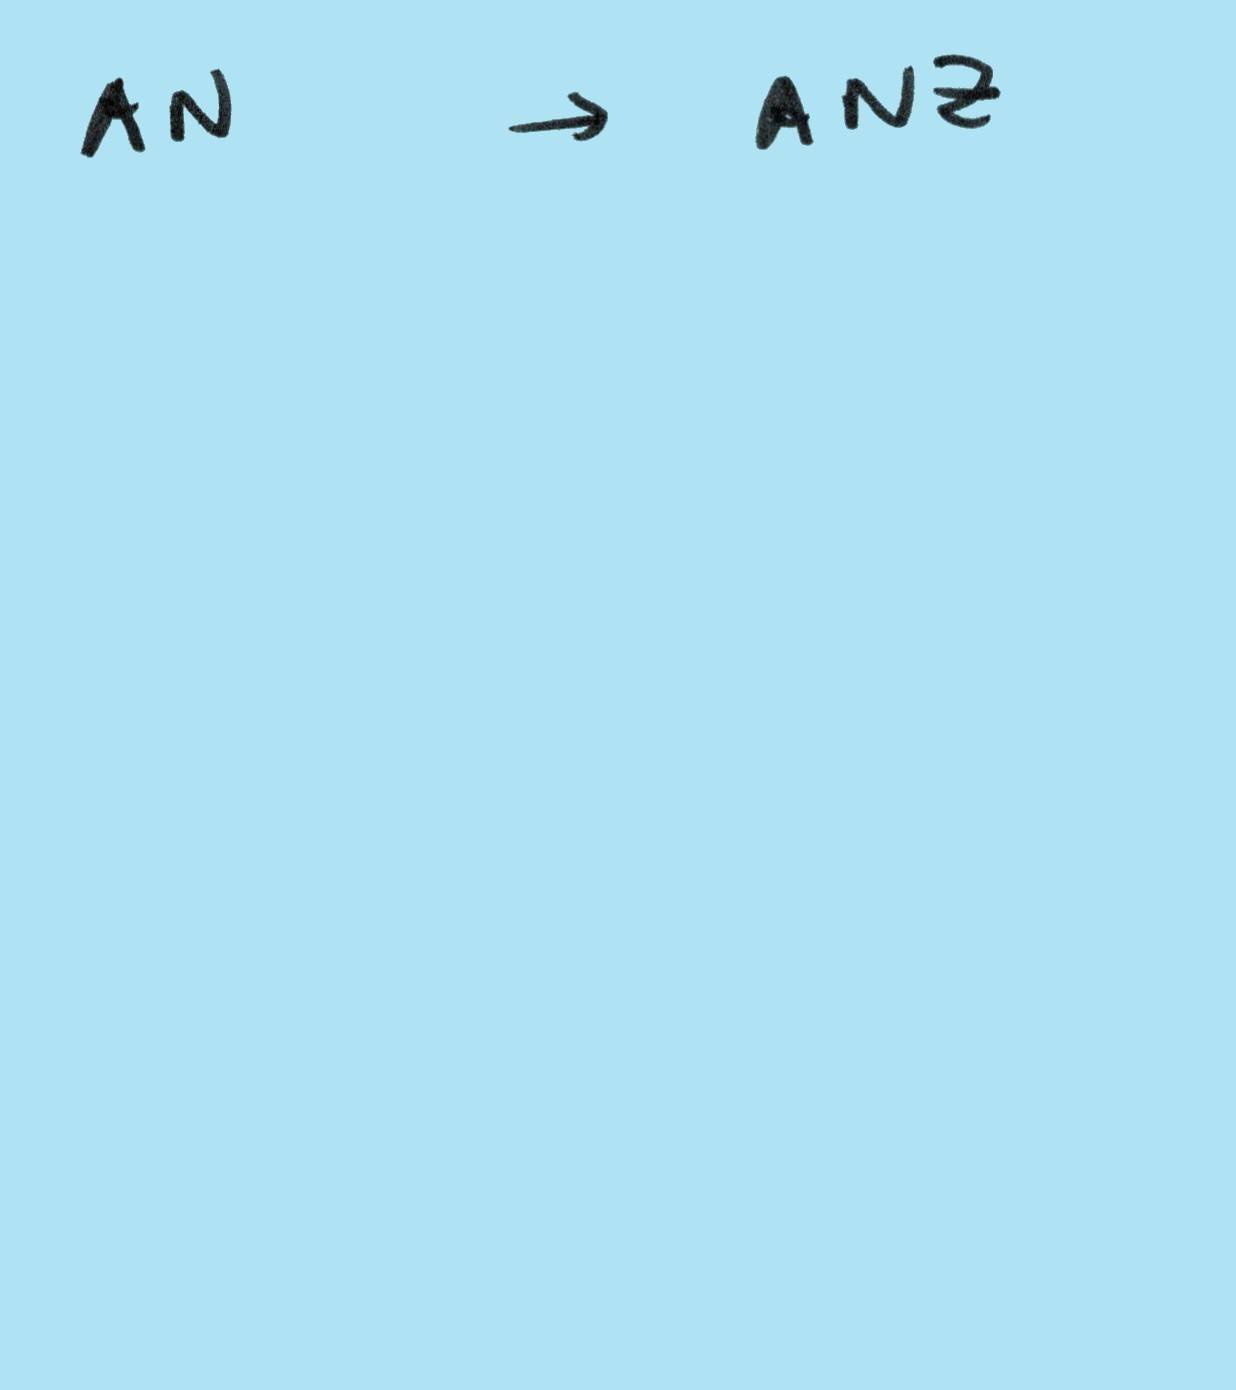 AN → ANZ